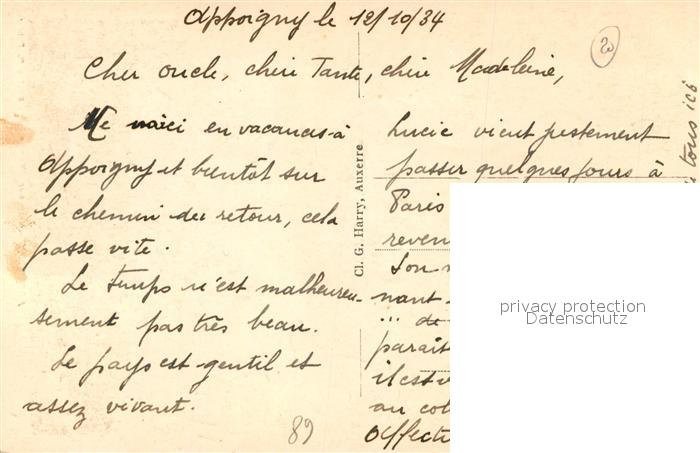 Appoigny le 12/10/34
Cher oncle, chère Tante, chère Madeleine,
Me voici en vacances à
Appoigny et bientôt sur
le chemin du retour, cela
passe vite.
Le temps n'est malheureu-
sement pas très beau.
Le pays est gentil et
assez vivant.
89
Cl. G. Harry, Auxerre
Lucie vient justement
passer quelques jours à
Paris
reven
Son
nant
... de
parait
il est
au col
Affecti
tous ici
privacy protection
Datenschutz